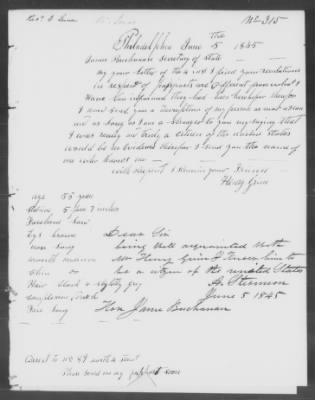 No 315
Philadelphia June 5 1845
James Buchanan Secretary of State
by your letter of the 4 inst I find your regulations
in respect of passports are different from what I
have been informed they had been heretofore
I now send you a description of my person
as long as I am a stranger to you my saying that
I was really and truly a citizen of the United States
would be no evidence therefore I send you the name of
one who knows me
with respect I remain your
Henry
age 55 years
stature 5 feet 7 inches
Forehead
Eyes brown
nose long
mouth medium
chin
Hair black & slightly grey
complexion
Face long
Dear Sir
being well acquainted with
Mr Henry I know him to
be a citizen of the united States
June 5 1845
Hon James Buchanan
Direct to No 89 south
Please send on my passport soon